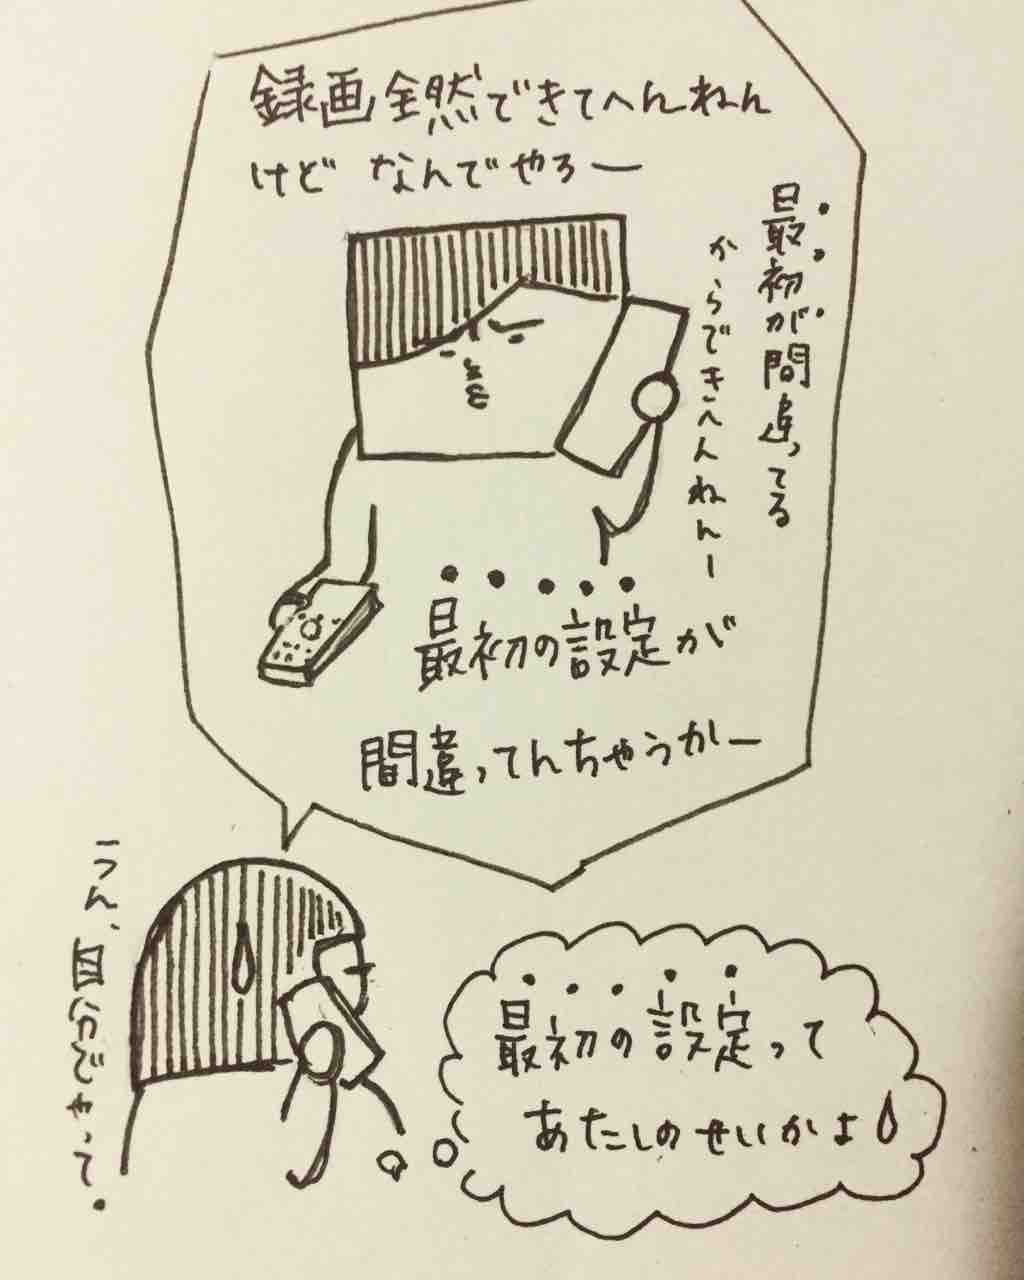 録画全然できてへんねん
けど なんでやろー
最初が間違ってる
からできへんねんー
最初の設定が
間違ってんちゃうかー
うん、自分でやって。
最初の設定って
あたしのせいかよ